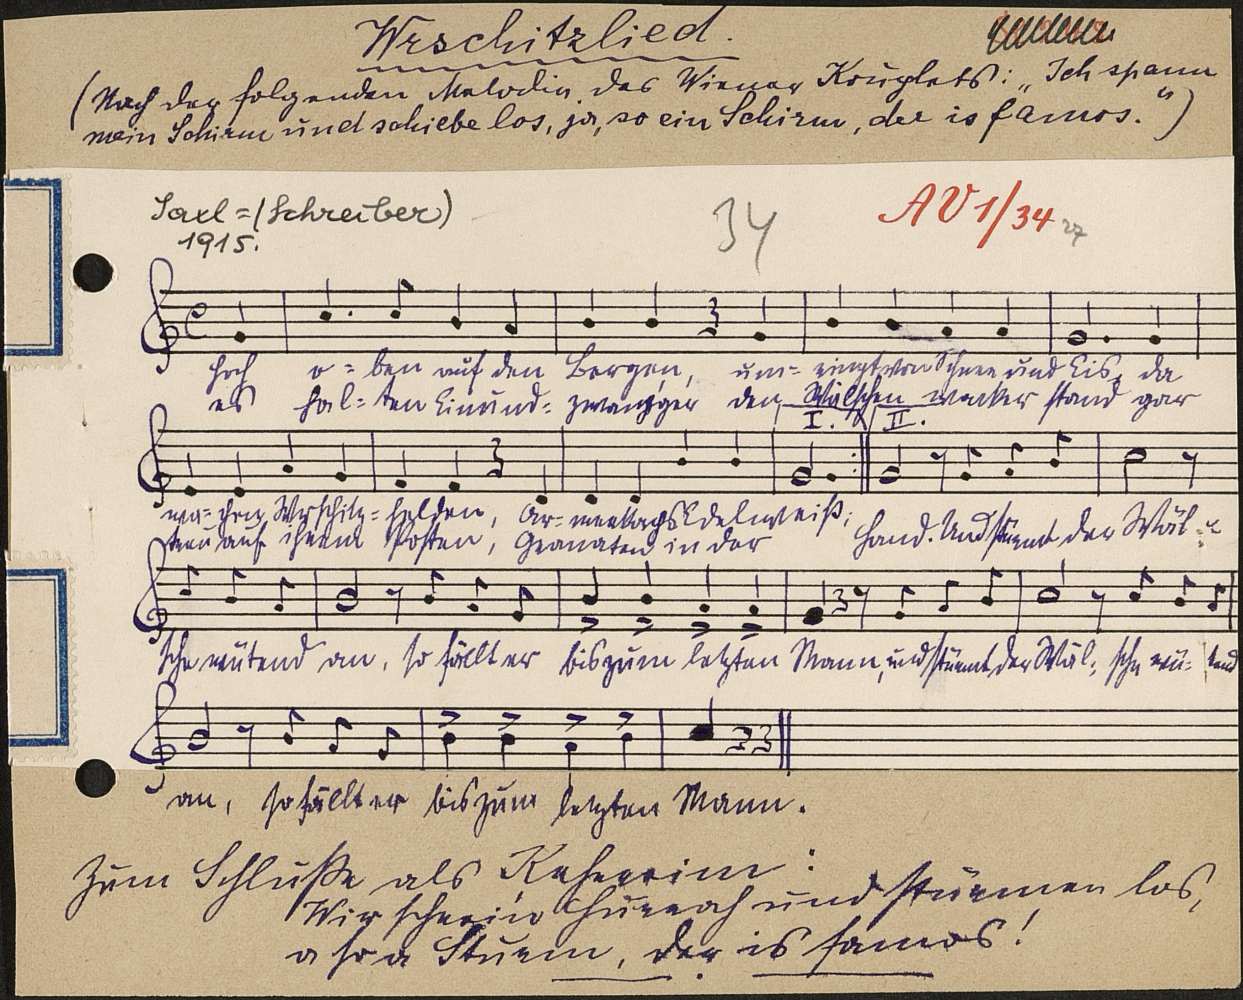 Wrschitzlied.
(Nach der folgenden Melodie des Wiener Kouplets: „Ich spann
mein Schirm und schiebe los, ja, so ein Schirm, der is famos.")
Saxl=(Schreiber)
1915.
34
AV1/34 27
Hoch o=ben auf den Bergen, um=ringt von Schnee und Eis, da
es hal=ten Einund=zwanzger den Wälschen wacker stand gar
I. II.
wa=chen Wrschitz=helden, Ar=mee Edelweiß;
treu auf ihrem Posten, Granaten in der Hand. Und stürmt der Wäl=
sche wütend an, so fällt er bis zum letzten Mann, und stürmt der Wäl=sche wü=tend
an, so fällt er bis zum letzten Mann.
Zum Schluße als Refrain:
Wir schrein Hurrah und stürmen los,
a so a Sturm, der is famos!